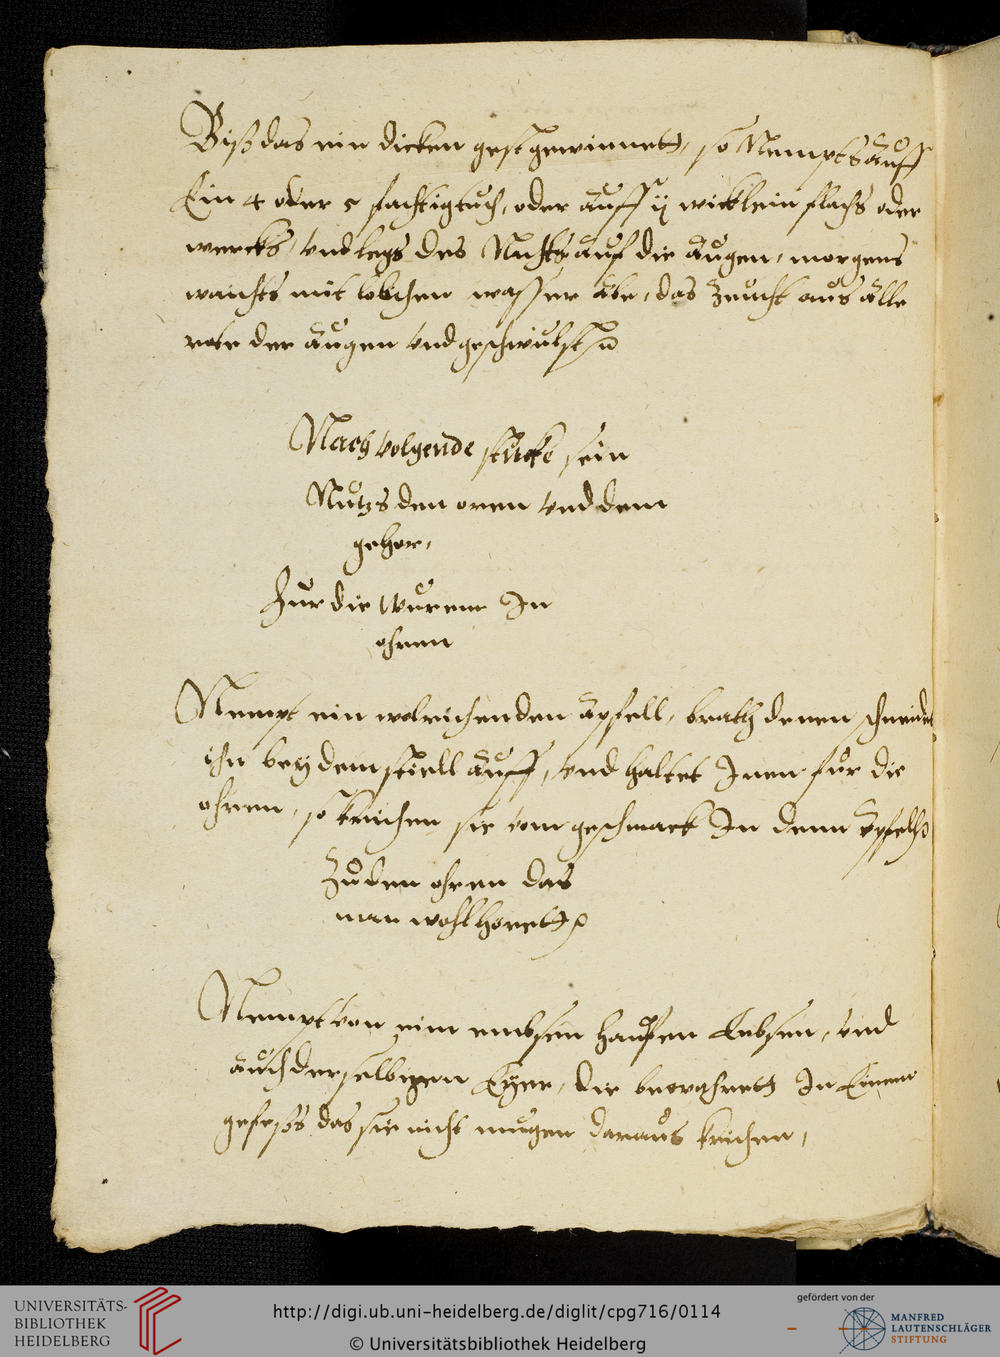 Biß das ein dicken gest gewinnett, so Nempts auff
Ein 4 oder 5 fachtig tuch, oder auff ij wicklein flachs oder
wercks, vnd legs des Nachts auf die augen, morgens
waschts mit lebchen wasser abe, das zeucht aus alle
rote der augen vnd geschwulst
Nach volgende stucke sein
Nutz den oren vnd dem
gehor,
Fur die wurem In
ohren
Nempt ein wolrichenden apffell, brath denen schneidet
ihn bey dem stiell auff, vnd haltet Inen fur die
ohren, so krichen sie vom geschmack In denn apffell
Zu den ohren das
man wohl horett
Nempt von eim embsen hauffen Embsen, vnd
auch derselbigen Eyer, die bewahrett In Einem
gefeß das sie nicht mugen daraus krichen,
UNIVERSITÄTS-
BIBLIOTHEK
HEIDELBERG
http://digi.ub.uni-heidelberg.de/diglit/cpg716/0114
© Universitätsbibliothek Heidelberg
gefördert von der
MANFRED
LAUTENSCHLÄGER
STIFTUNG